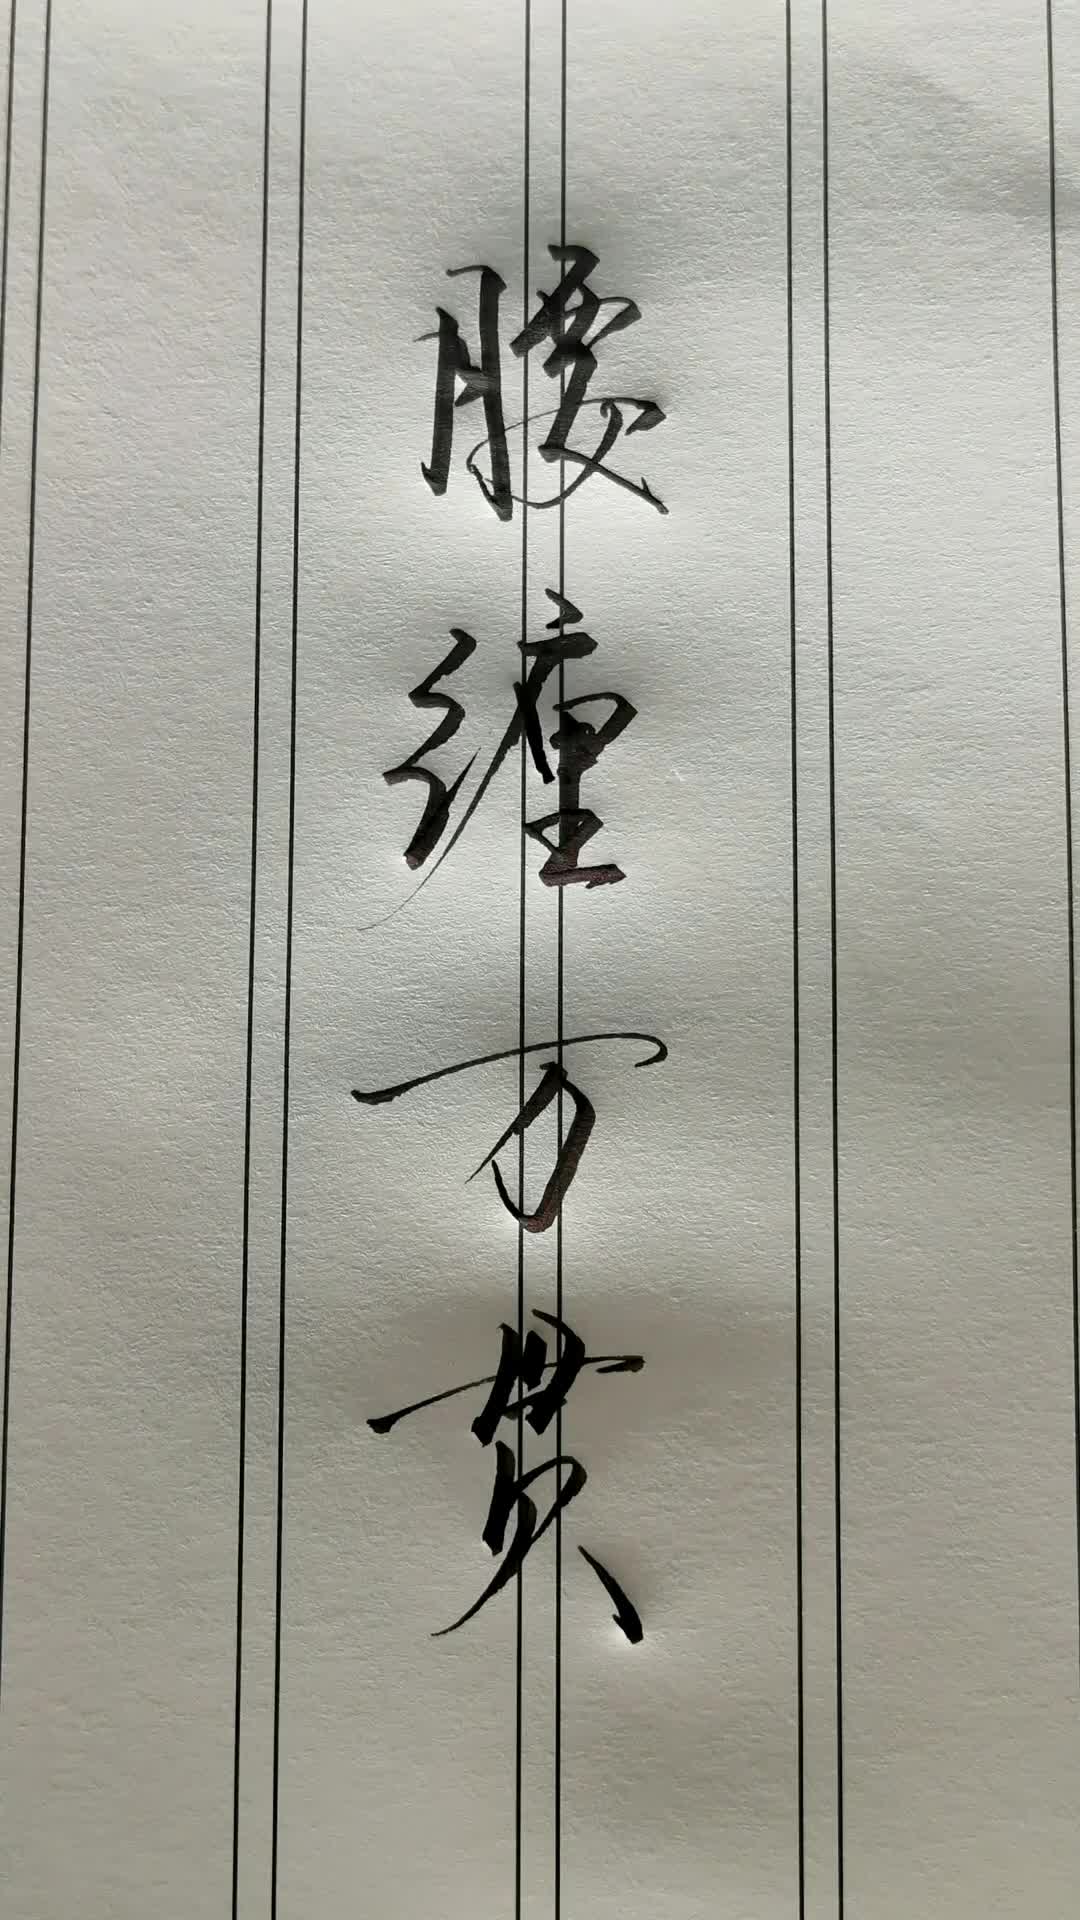 腰缠万贯